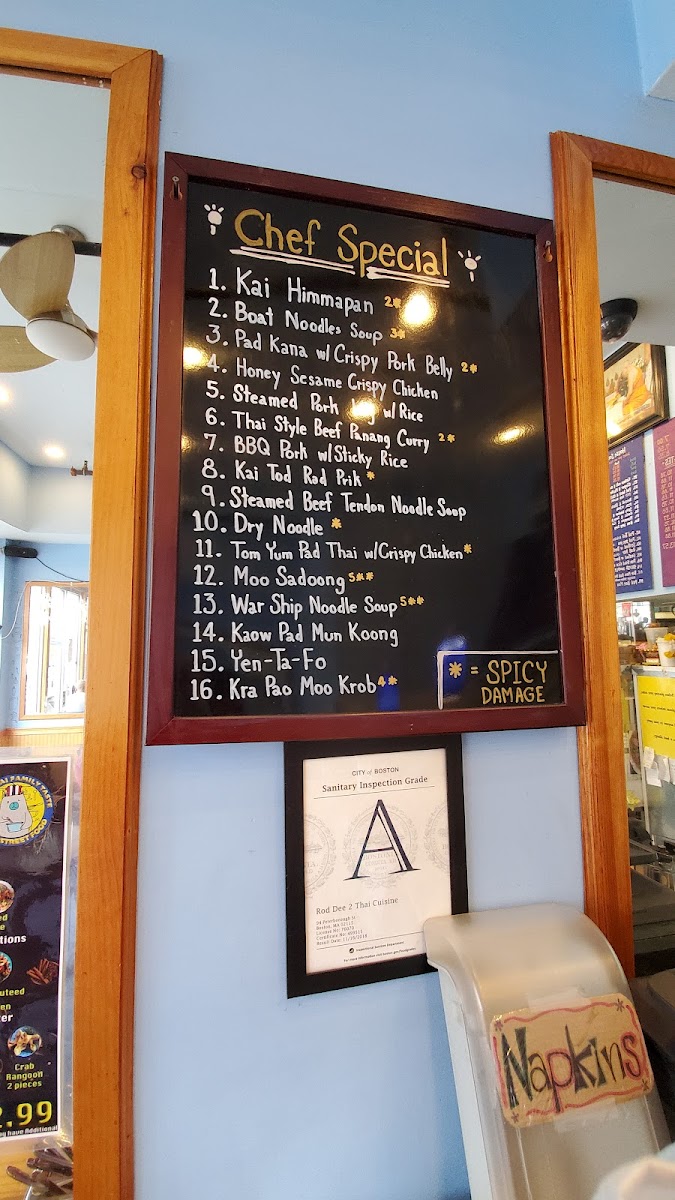 Chef Special
1. Kai Himmapan 2*
2. Boat Noodles Soup 3*
3. Pad Kana w/ Crispy Pork Belly 2*
4. Honey Sesame Crispy Chicken
5. Steamed Pork w/ Rice
6. Thai Style Beef Panang Curry 2*
7. BBQ Pork w/ Sticky Rice
8. Kai Tod Rad Prik *
9. Steamed Beef Tendon Noodle Soup
10. Dry Noodle *
11. Tom Yum Pad Thai w/ Crispy Chicken *
12. Moo Sadoong 5**
13. War Ship Noodle Soup 5**
14. Kaow Pad Mun Koong
15. Yen-Ta-Fo
16. Kra Pao Moo Krob 4*
* = SPICY
DAMAGE
CITY of BOSTON
Sanitary Inspection Grade
A
Rod Dee 2 Thai Cuisine
Boston, MA
FAMILY TASTE
STREET FOOD
Crab
Rangoon
2 pieces
2.99
have Additional
Napkins